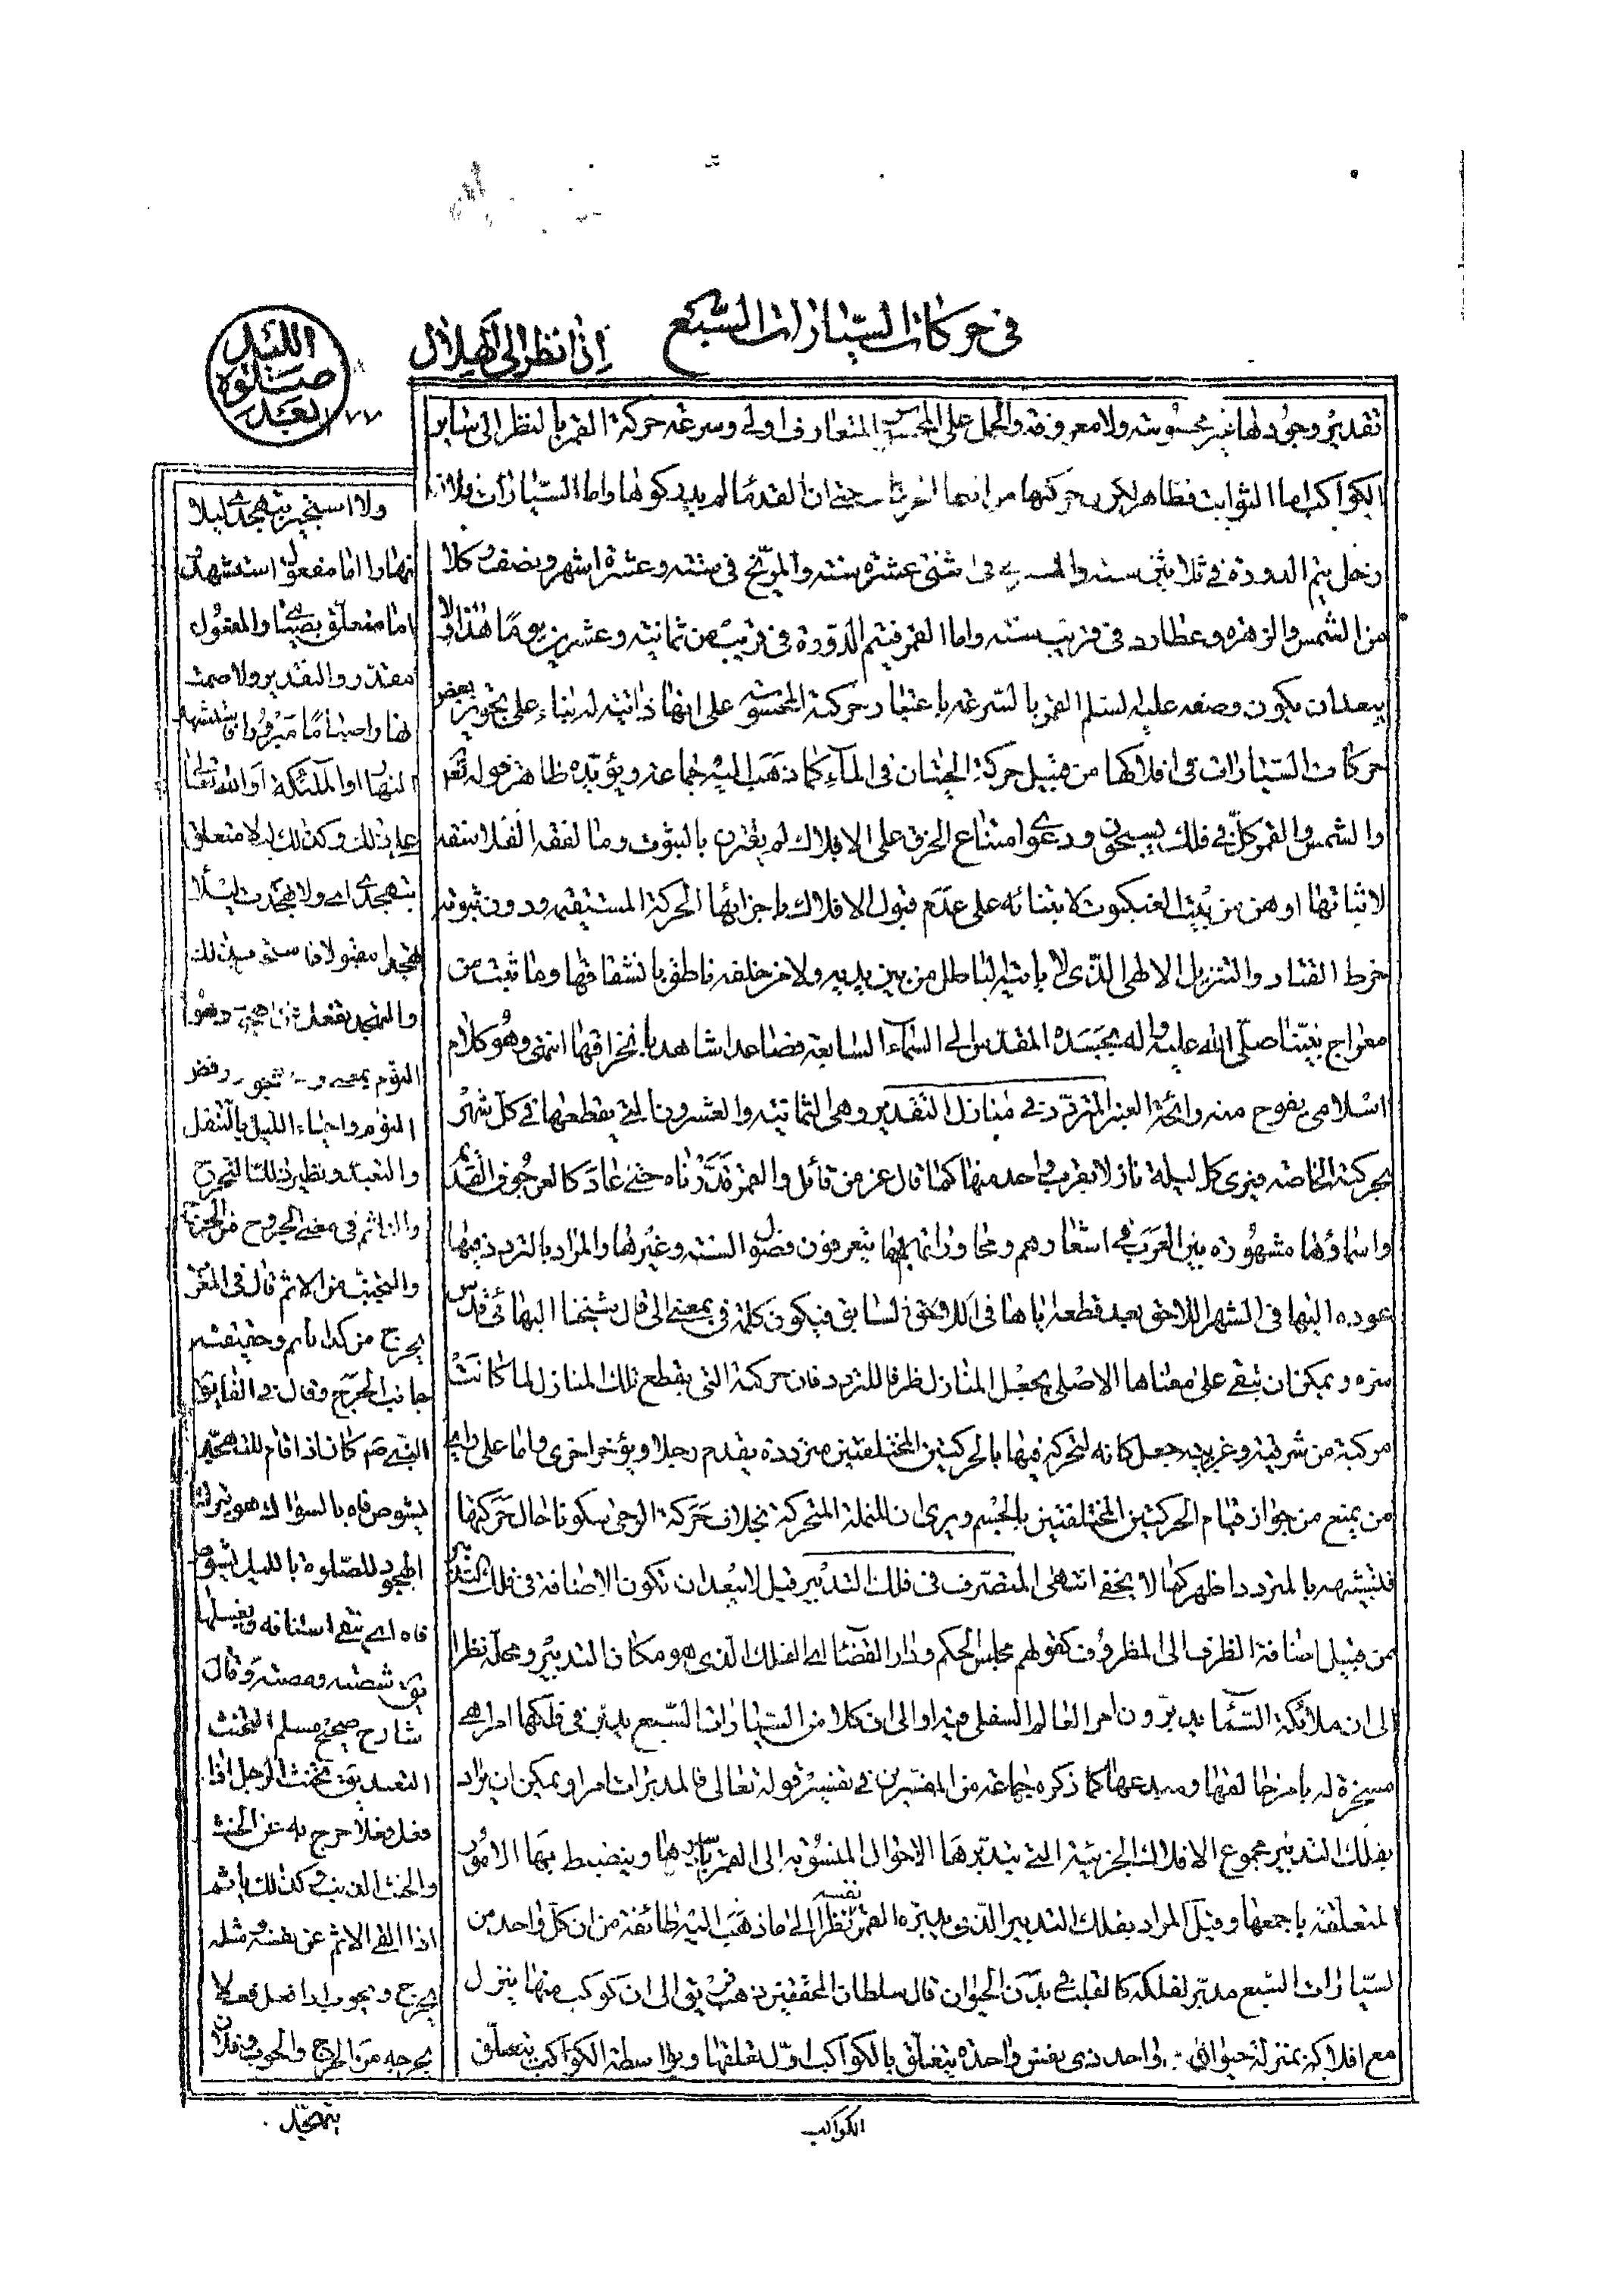 في حركات السيارات السبع
إذا نظر إلى الهلال
الليل صلوة بعد
١٧٧
تقدير وجودها غير محسوسة ولا معروفة والحمل على المحسوس المتعارف اولى وسرعة حركة القمر بالنظر الى ساير
الكواكب اما الثوابت فظاهر لكون حركتها من ابطأ الحركات حتى ان القدماء لم يدركوها واما السيارات فلان
زحل يتم الدورة في ثلاثين سنة والمشتري في اثنتى عشرة سنة والمريخ في سنة وعشرة اشهر ونصف وكلا
من الشمس والزهرة وعطارد في قريب سنة واما القمر فيتم الدورة في قريب من ثمانية وعشرين يوما هذا ولا
يبعد ان يكون وصفه عليه السلم القمر بالسرعة باعتبار حركته المحسوسة على انها ذاتية له بناء على تجويز بعض
حركات السيارات في افلاكها من قبيل حركة الحيتان في الماء كما ذهب اليه جماعة ويؤيده ظاهر قوله تعالى
والشمس والقمر كل في فلك يسبحون ودعوى امتناع الخرق على الافلاك لم يقترن بالثبوت وما لفقه الفلاسفة
لاثباتها اوهن من بيت العنكبوت لابتنائه على عدم قبول الافلاك باجزائها الحركة المستقيمة ودون ثبوته
خرط القتاد والتنزيل الالهي الذي لا يأتيه الباطل من بين يديه ولا من خلفه ناطق بانشقاقها وما ثبت من
معراج نبينا صلى الله عليه واله بجسده المقدس الى السماء السابعة فصاعدا شاهد بانخراقها انتهى وهو كلام
اسلامي يفوح منه رائحة العنبر المتردد في منازل التقدير وهي الثمانية والعشرون التي يقطعها في كل شهر
بحركته الخاصة فيرى كل ليلة نازلا بقرب واحد منها كما قال عز من قائل والقمر قدرناه منازل حتى عاد كالعرجون القديم
واسماؤها مشهورة بين العرب في اشعارهم ومحاوراتهم بها يتعرفون فصول السنة وغيرها والمراد بالتردد فيها
عوده اليها في الشهر اللاحق بعد قطعه اياها في السابق فيكون كلمة في بمعنى الى قال شيخنا البهائي قدس
سره ويمكن ان تبقى على معناها الاصلي بجعل المنازل ظرفا للتردد فان حركته التي يقطع تلك المنازل لما كانت
مركبة من شرقية وغربية جعل كانه لتحركه فيها بالحركتين المختلفتين متردد يقدم رجلا ويؤخر اخرى واما على راي
من يمنع من جواز قيام الحركتين المختلفتين بالجسم ويرى ان للنملة المتحركة بخلاف حركة الرحى سكونا حال حركتها
فتشبيهه بالمتردد اظهر كما لا يخفى انتهى المتصرف في فلك التدبير قيل لا يبعد ان تكون الاضافة في فلك التدبير
من قبيل اضافة الظرف الى المظروف كقولهم مجلس الحكم ودار القضاء اي الفلك الذي هو مكان التدبير ومحله نظرا
الى ان ملائكة السماء يدبرون امر العالم السفلي فيه او الى ان كلا من السيارات السبع يدبر في فلكها امرا هي
مسخرة له بامر خالقها ومبدعها كما ذكره جماعة من المفسرين في تفسير قوله تعالى فالمدبرات امرا ويمكن ان يراد
بفلك التدبير مجموع الافلاك الجزئية التي يتدبر بها الاحوال المنسوبة الى القمر باسرها وينضبط بها الامور
المتعلقة باجمعها وقيل المراد بفلك التدبير الذي يدبره القمر نفسه نظرا الى ما ذهب اليه طائفة من ان كل واحد من
السيارات السبع مدبر لفلكه كالقلب في بدن الحيوان قال سلطان المحققين ذهب فريق الى ان كل كوكب منها ينزل
مع افلاكه بمنزلة حيوان واحد ذي نفس واحدة يتعلق بالكواكب اول تعلقها وبواسطة الكواكب يتعلق
الكواكب
ولا استجير بتهجدي ليلا
نهارا اما مفعول استشهد
اما متعلق بصيام والمفعول
مقدر والتقدير ولا صمت
النهار او الملئكة او الله تعالى
على ذلك وكذلك ليلا متعلق
بتهجدي اي ولا تهجدت ليلا
النوم واحياء الليل بالتنفل
والتعبد ونظير ذلك التحرج
والتأثم في معنى الخروج من الحرج
والتجنب من الاثم قال في المغرب
تحرج من كذا تأثم وحقيقته
جانب الحرج وقال في الفايق
النبي ص كان اذا قام للتهجد
يشوص فاه بالسواك هو ترك
الهجود للصلوة بالليل يشوص
فاه اي ينقي اسنانه ويغسلها
يق شصته ومصته وقال
شارح صحيح مسلم التحنث
التعبد يق تحنث الرجل اذا
فعل فعلا خرج به عن الحنث
والحنث الذنب وكذلك تأثم
اذا القى الاثم عن نفسه ومثله
تحرج وتحوب اذا فعل فعلا
يخرجه من الحرج والحوب وفلان
يتهجد